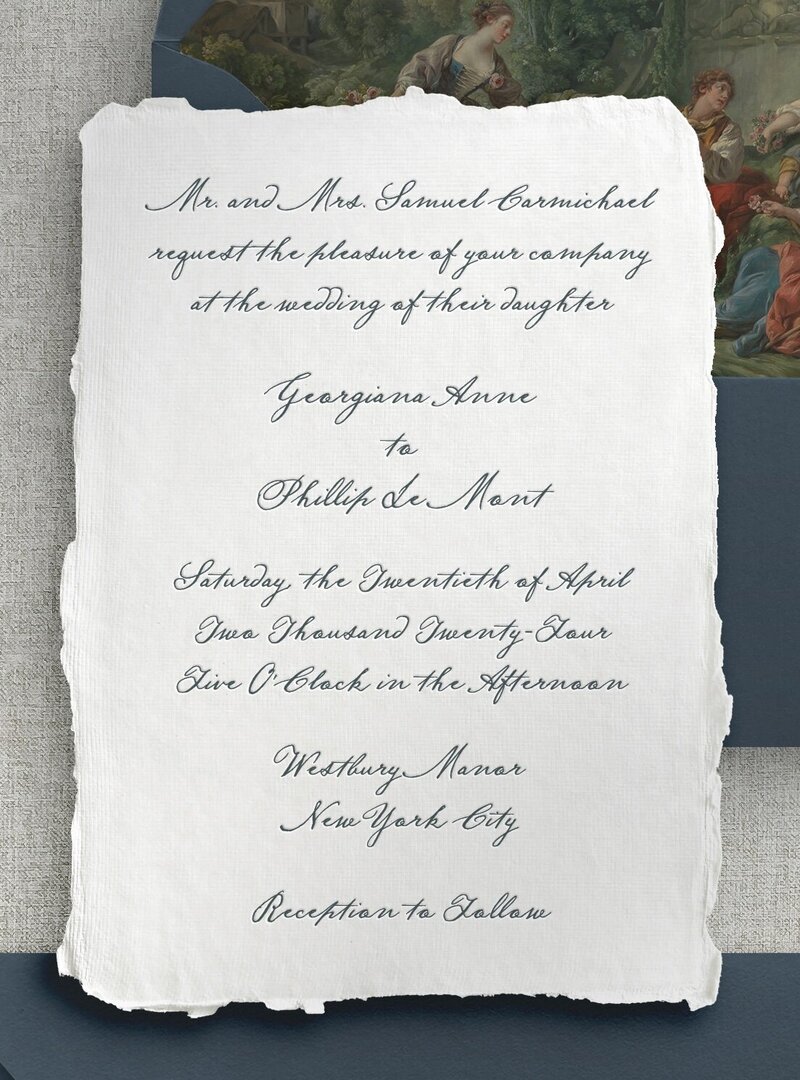 Mr. and Mrs. Samuel Carmichael
request the pleasure of your company
at the wedding of their daughter
Georgiana Anne
to
Phillip Le Mont
Saturday, the Twentieth of April
Two Thousand Twenty-Four
Five O'Clock in the Afternoon
Westbury Manor
New York City
Reception to Follow